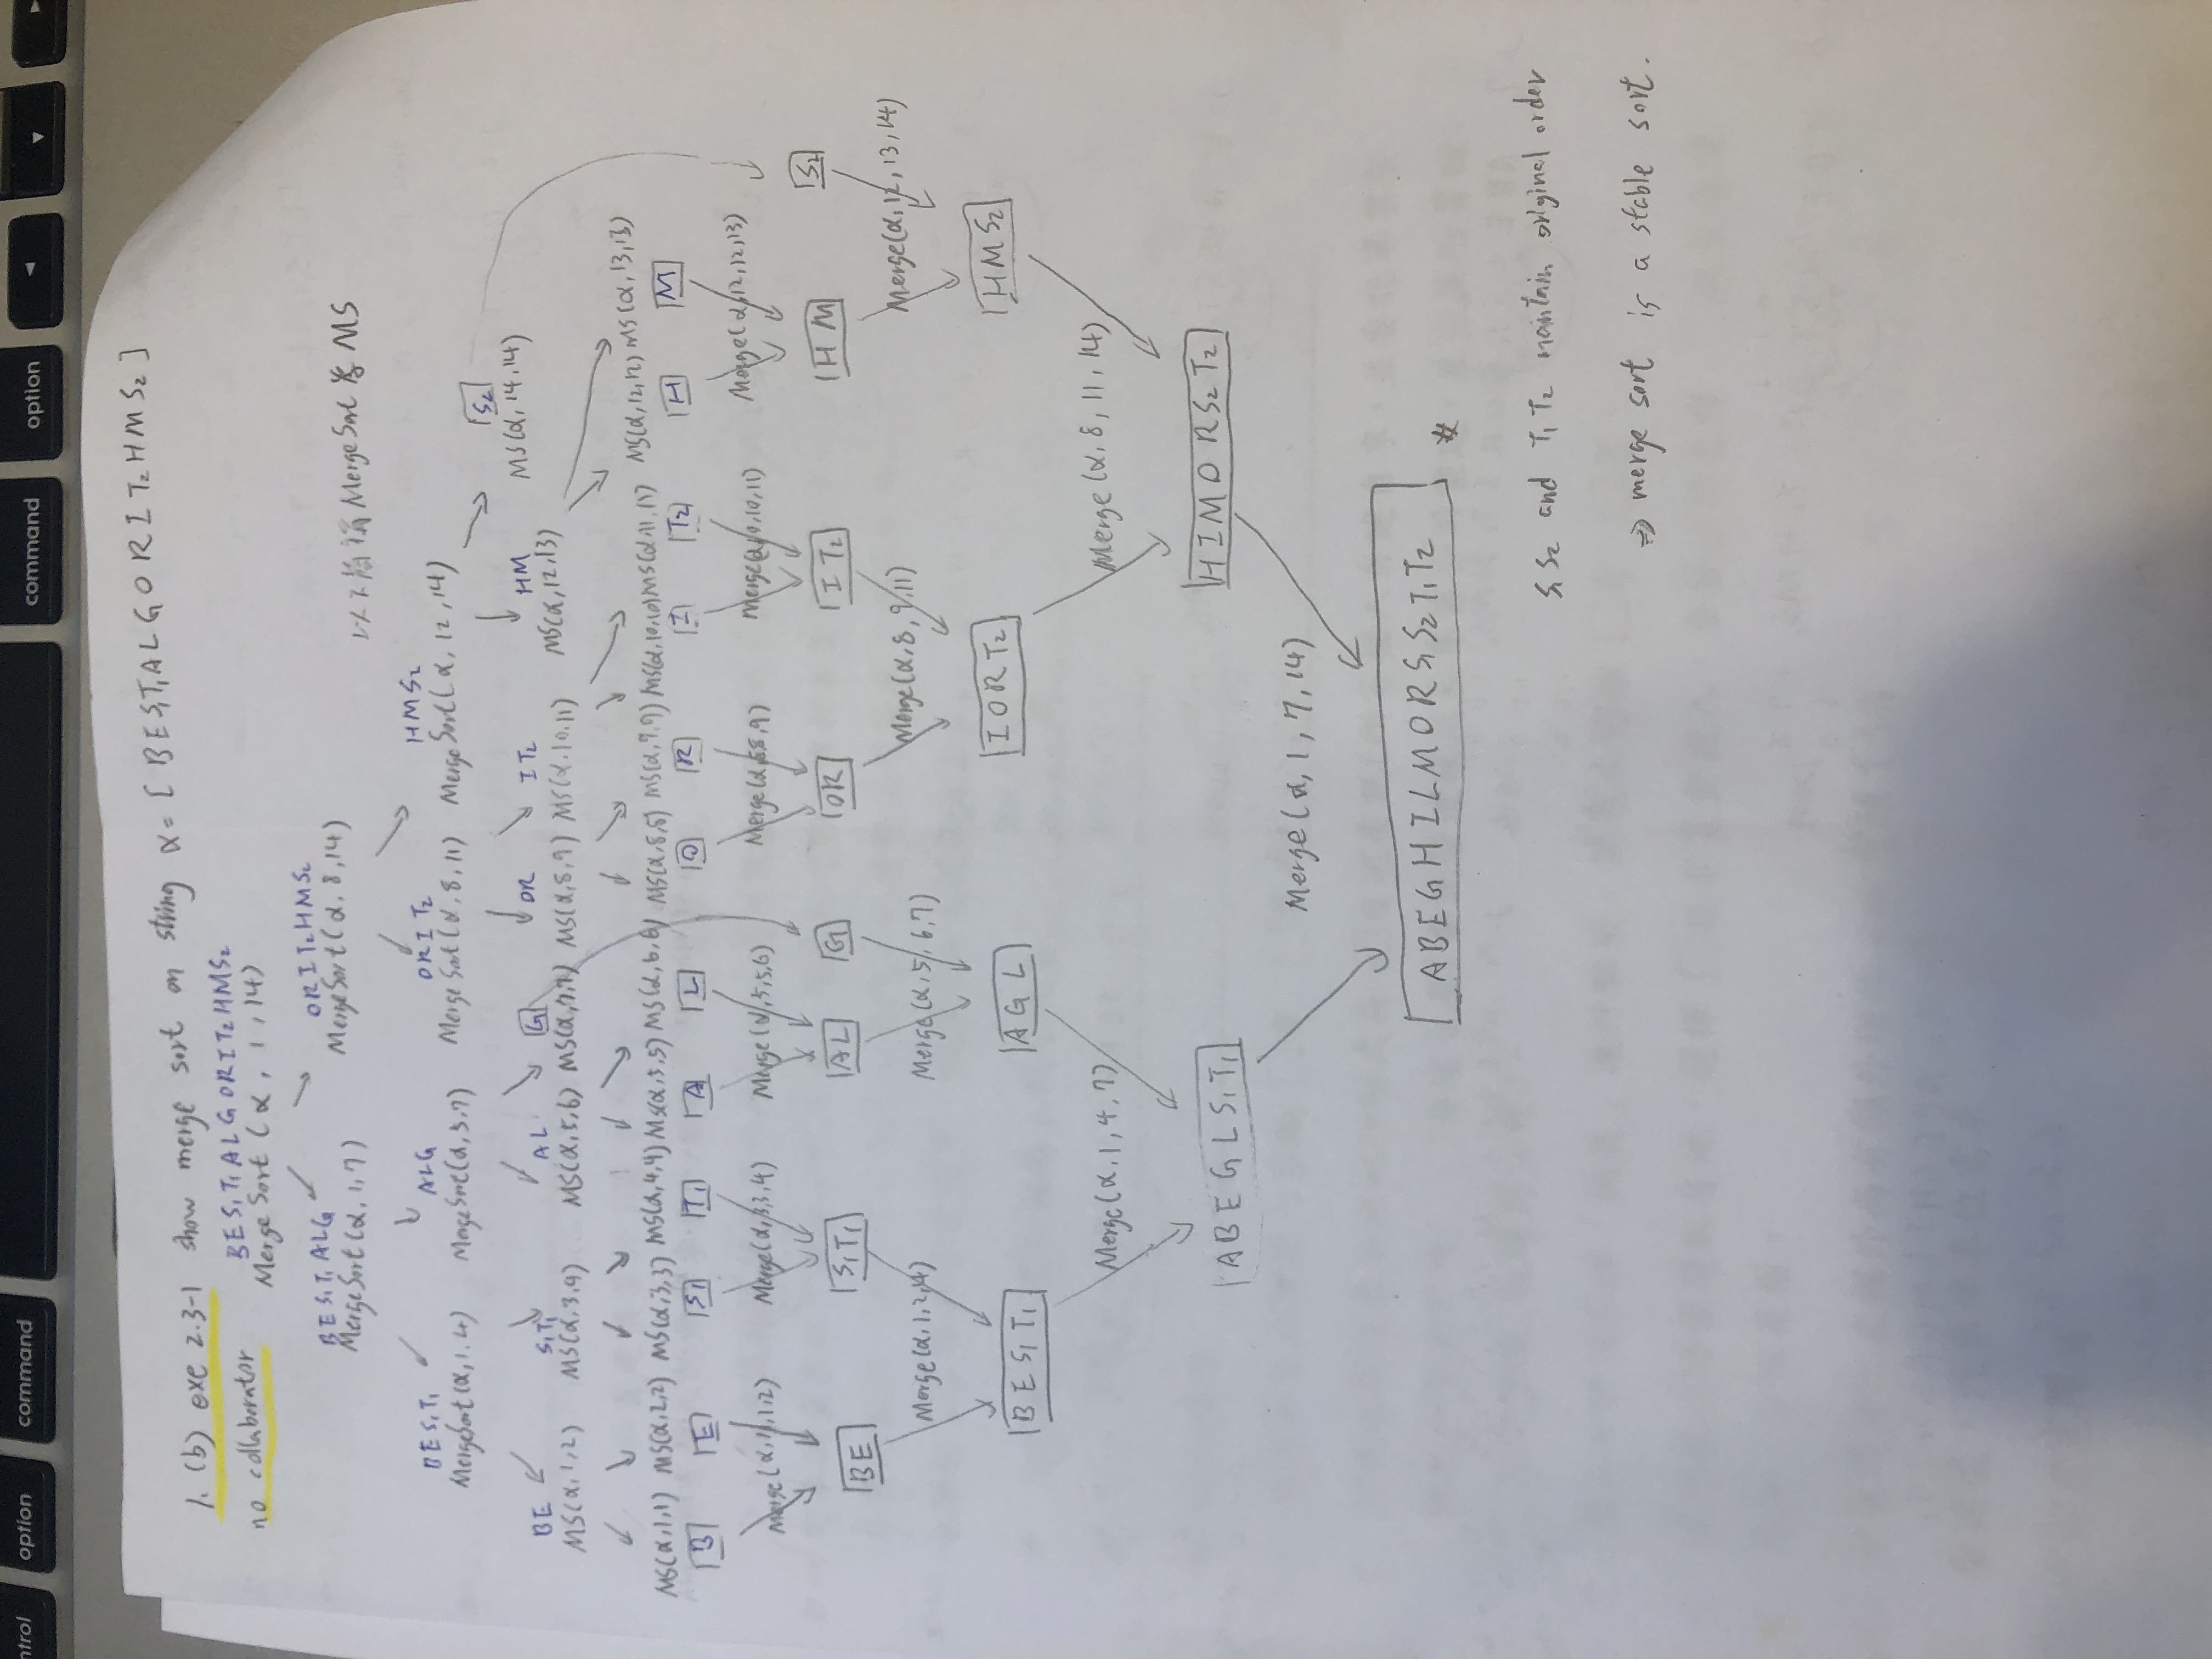 option command command option
1. (b) exe 2.3-1 show merge sort on string α = [ BES₁T₁ALGORIT₂HMS₂ ]
no collaborator
BES₁T₁ALGORIT₂HMS₂
MergeSort (α, 1, 14)
BES₁T₁ALG ORIT₂HMS₂
MergeSort(α, 1, 7) MergeSort(α, 8, 14)
以下簡稱 MergeSort 為 MS
BES₁T₁ ALG ORIT₂ HMS₂
MergeSort(α, 1, 4) MergeSort(α, 5, 7) MergeSort(α, 8, 11) MergeSort(α, 12, 14)
BE S₁T₁ AL G OR IT₂ HM S₂
MS(α, 1, 2) MS(α, 3, 4) MS(α, 5, 6) MS(α, 7, 7) MS(α, 8, 9) MS(α, 10, 11) MS(α, 12, 13) MS(α, 14, 14)
MS(α, 1, 1) MS(α, 2, 2) MS(α, 3, 3) MS(α, 4, 4) MS(α, 5, 5) MS(α, 6, 6) MS(α, 8, 8) MS(α, 9, 9) MS(α, 10, 10) MS(α, 11, 11) MS(α, 12, 12) MS(α, 13, 13)
B E S₁ T₁ A L O R I T₂ H M
Merge(α, 1, 1, 2) Merge(α, 3, 3, 4) Merge(α, 5, 5, 6) Merge(α, 8, 8, 9) Merge(α, 10, 10, 11) Merge(α, 12, 12, 13)
BE S₁T₁ AL G OR IT₂ HM S₂
Merge(α, 1, 2, 4) Merge(α, 5, 6, 7) Merge(α, 8, 9, 11) Merge(α, 12, 13, 14)
BES₁T₁ AGL IORT₂ HMS₂
Merge(α, 1, 4, 7) Merge(α, 8, 11, 14)
ABEGLS₁T₁ HIMORS₂T₂
Merge(α, 1, 7, 14)
ABEGHILMORS₁S₂T₁T₂ #
S₁S₂ and T₁T₂ maintain original order
⇒ merge sort is a stable sort.